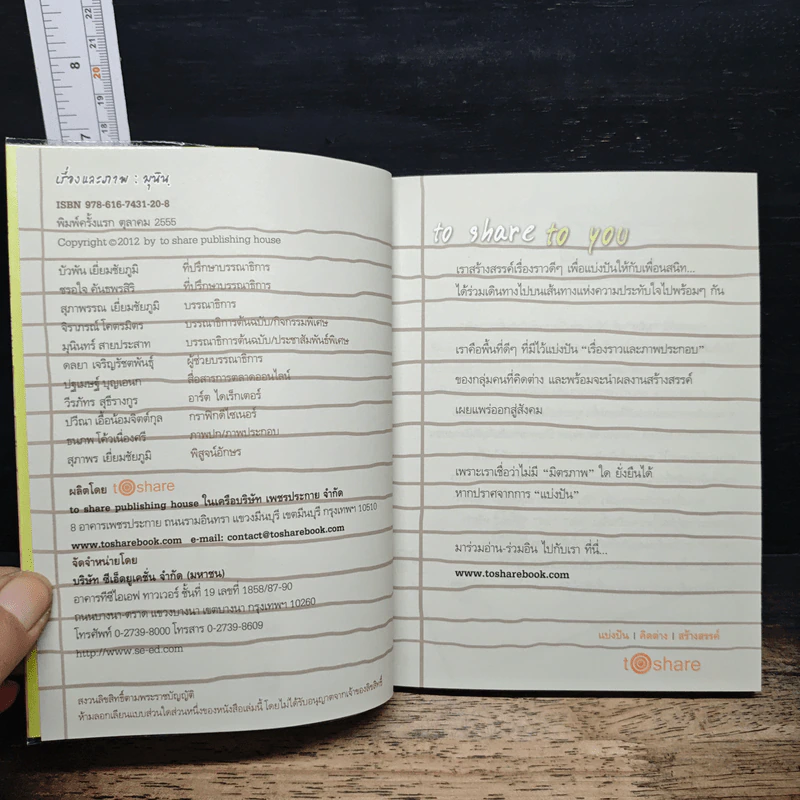 เรื่องและภาพ : มุนิน
ISBN 978-616-7431-20-8
พิมพ์ครั้งแรก ตุลาคม 2555
Copyright ©2012 by to share publishing house
บัวพัน เยี่ยมชัยภูมิ ที่ปรึกษาบรรณาธิการ
ชรอใจ คันธพรสิริ ที่ปรึกษาบรรณาธิการ
สุภาพรรณ เยี่ยมชัยภูมิ บรรณาธิการ
จิราภรณ์ โคตรมิตร บรรณาธิการต้นฉบับ/กิจกรรมพิเศษ
มุนินทร์ สายประสาท บรรณาธิการต้นฉบับ/ประชาสัมพันธ์พิเศษ
ดลยา เจริญรัชตพันธุ์ ผู้ช่วยบรรณาธิการ
ปฐเมษฐ์ บุญเอนก สื่อสารการตลาดออนไลน์
วีรภัทร สุธีรางกูร อาร์ต ไดเร็กเตอร์
ปวีณา เอื้อน้อมจิตต์กุล กราฟิกดีไซเนอร์
ธนภพ โค้วเนื่องศรี ภาพปก/ภาพประกอบ
สุภาพร เยี่ยมชัยภูมิ พิสูจน์อักษร
ผลิตโดย toshare
to share publishing house ในเครือบริษัท เพชรประกาย จำกัด
8 อาคารเพชรประกาย ถนนรามอินทรา แขวงมีนบุรี เขตมีนบุรี กรุงเทพฯ 10510
www.tosharebook.com e-mail: contact@tosharebook.com
จัดจำหน่ายโดย
บริษัท ซีเอ็ดยูเคชั่น จำกัด (มหาชน)
อาคารทีซีไอเอฟ ทาวเวอร์ ชั้นที่ 19 เลขที่ 1858/87-90
ถนนบางนา-ตราด แขวงบางนา เขตบางนา กรุงเทพฯ 10260
โทรศัพท์ 0-2739-8000 โทรสาร 0-2739-8609
http://www.se-ed.com
สงวนลิขสิทธิ์ตามพระราชบัญญัติ
ห้ามลอกเลียนแบบส่วนใดส่วนหนึ่งของหนังสือเล่มนี้ โดยไม่ได้รับอนุญาตจากเจ้าของลิขสิทธิ์
to share to you
เราสร้างสรรค์เรื่องราวดีๆ เพื่อแบ่งปันให้กับเพื่อนสนิท...
ได้ร่วมเดินทางไปบนเส้นทางแห่งความประทับใจไปพร้อมๆ กัน
เราคือพื้นที่ดีๆ ที่มีไว้แบ่งปัน “เรื่องราวและภาพประกอบ”
ของกลุ่มคนที่คิดต่าง และพร้อมจะนำผลงานสร้างสรรค์
เผยแพร่ออกสู่สังคม
เพราะเราเชื่อว่าไม่มี “มิตรภาพ” ใด ยั่งยืนได้
หากปราศจากการ “แบ่งปัน”
มาร่วมอ่าน-ร่วมอิน ไปกับเรา ที่นี่...
www.tosharebook.com
แบ่งปัน | คิดต่าง | สร้างสรรค์
toshare
8
7
22
21
20
19
18